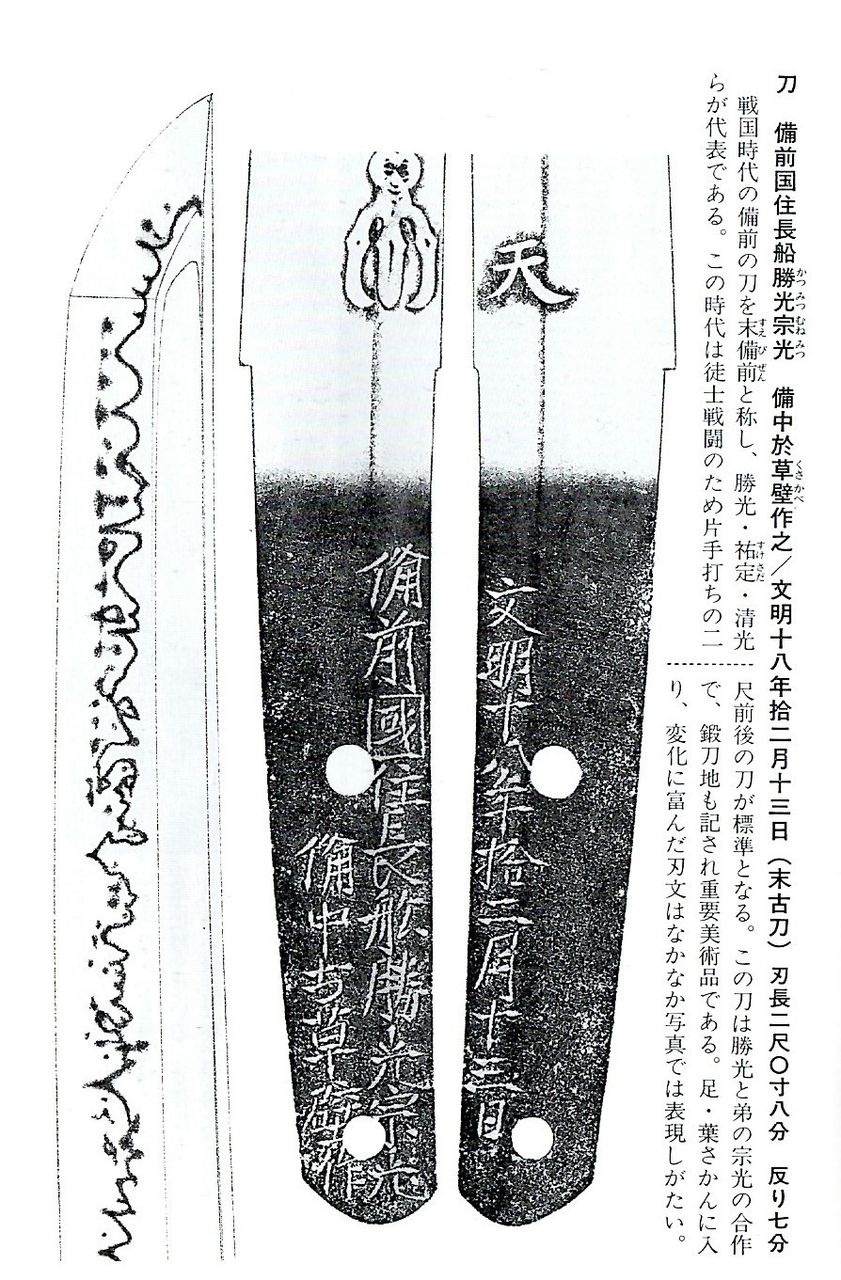 刀　備前国住長船勝光宗光　備中於草壁作之／文明十八年拾二月十三日（末古刀）刃長二尺〇寸八分　反り七分
かつみつむねみつ
くさかべ
戦国時代の備前の刀を末備前と称し、勝光・祐定・清光
すえびぜん
すけさだ
らが代表である。この時代は徒士戦闘のため片手打ちの二
尺前後の刀が標準となる。この刀は勝光と弟の宗光の合作
で、鍛刀地も記され重要美術品である。足・葉さかんに入
り、変化に富んだ刃文はなかなか写真では表現しがたい。
天
文明十八年拾二月十三日
備前國住長船勝光宗光
備中於草壁作